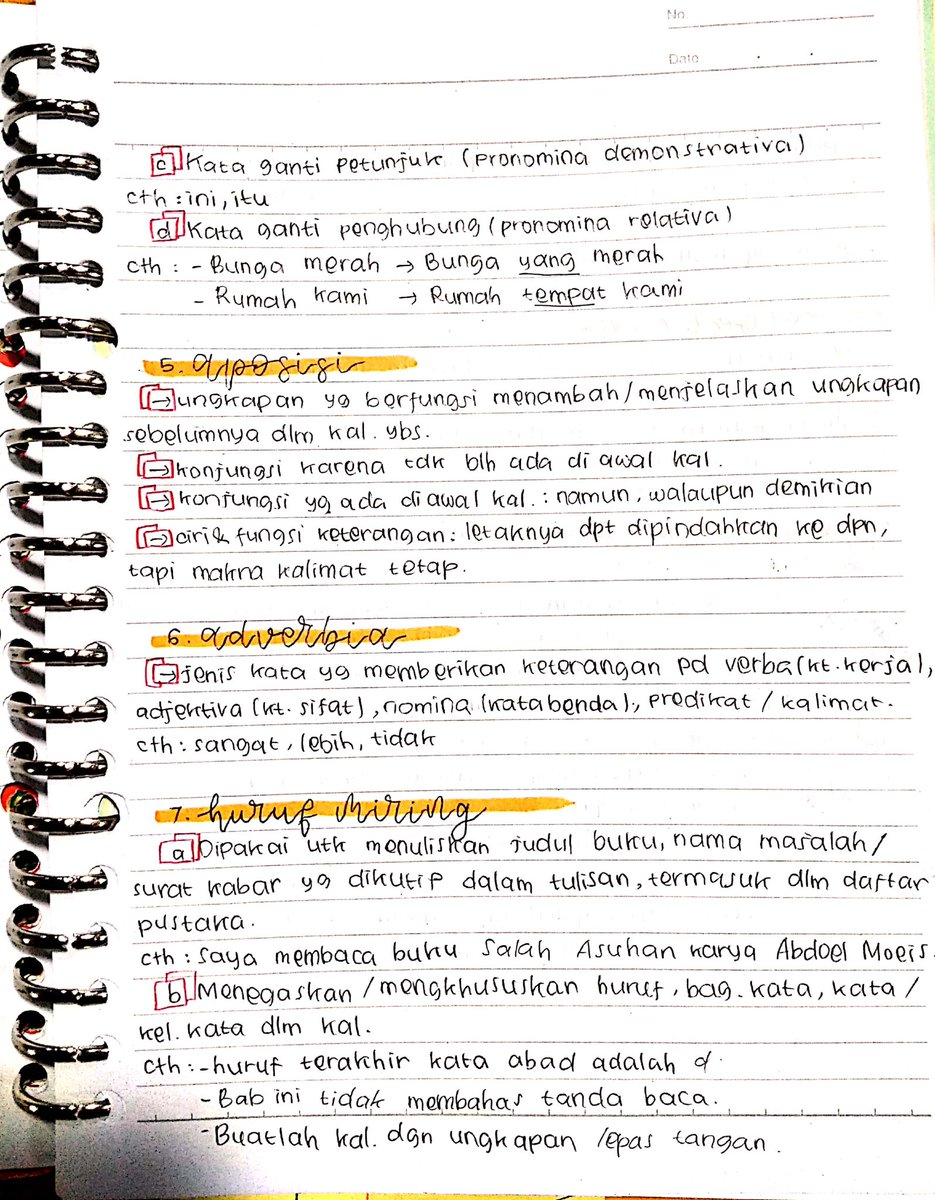 No
Date
c Kata ganti petunjuk (pronomina demonstrativa)
cth : ini, itu
d Kata ganti penghubung (pronomina relativa)
cth : - Bunga merah → Bunga yang merah
- Rumah kami → Rumah tempat kami
5. aposisi
→ ungkapan yg berfungsi menambah/menjelaskan ungkapan
sebelumnya dlm kal. ybs.
→ konjungsi karena tdk blh ada di awal kal.
→ konjungsi yg ada di awal kal. : namun, walaupun demikian
→ ciri & fungsi keterangan : letaknya dpt dipindahkan ke dpn,
tapi makna kalimat tetap.
6. adverbia
→ jenis kata yg memberikan keterangan pd verba (kt. kerja),
adjektiva (kt. sifat), nomina (kata benda), predikat / kalimat.
cth : sangat, lebih, tidak
7. huruf miring
a Dipakai utk menuliskan judul buku, nama majalah/
surat kabar yg dikutif dalam tulisan, termasuk dlm daftar
pustaka.
cth : Saya membaca buku Salah Asuhan karya Abdoel Moeis.
b Menegaskan / mengkhususkan huruf, bag. kata, kata /
kel. kata dlm kal.
cth : - huruf terakhir kata abad adalah d.
- Bab ini tidak membahas tanda baca.
- Buatlah kal. dgn ungkapan lepas tangan.